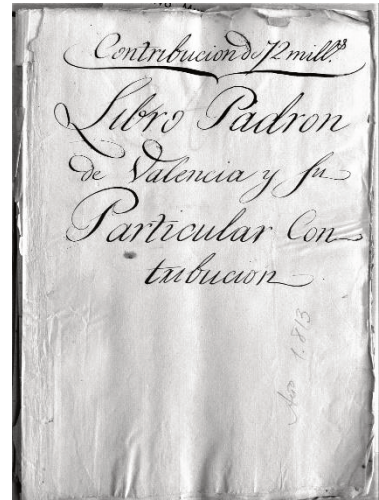 Contribucion de 72 mill.ˢ
Libro Padron
de Valencia y su
Particular Con
tribucion
Año 1.813